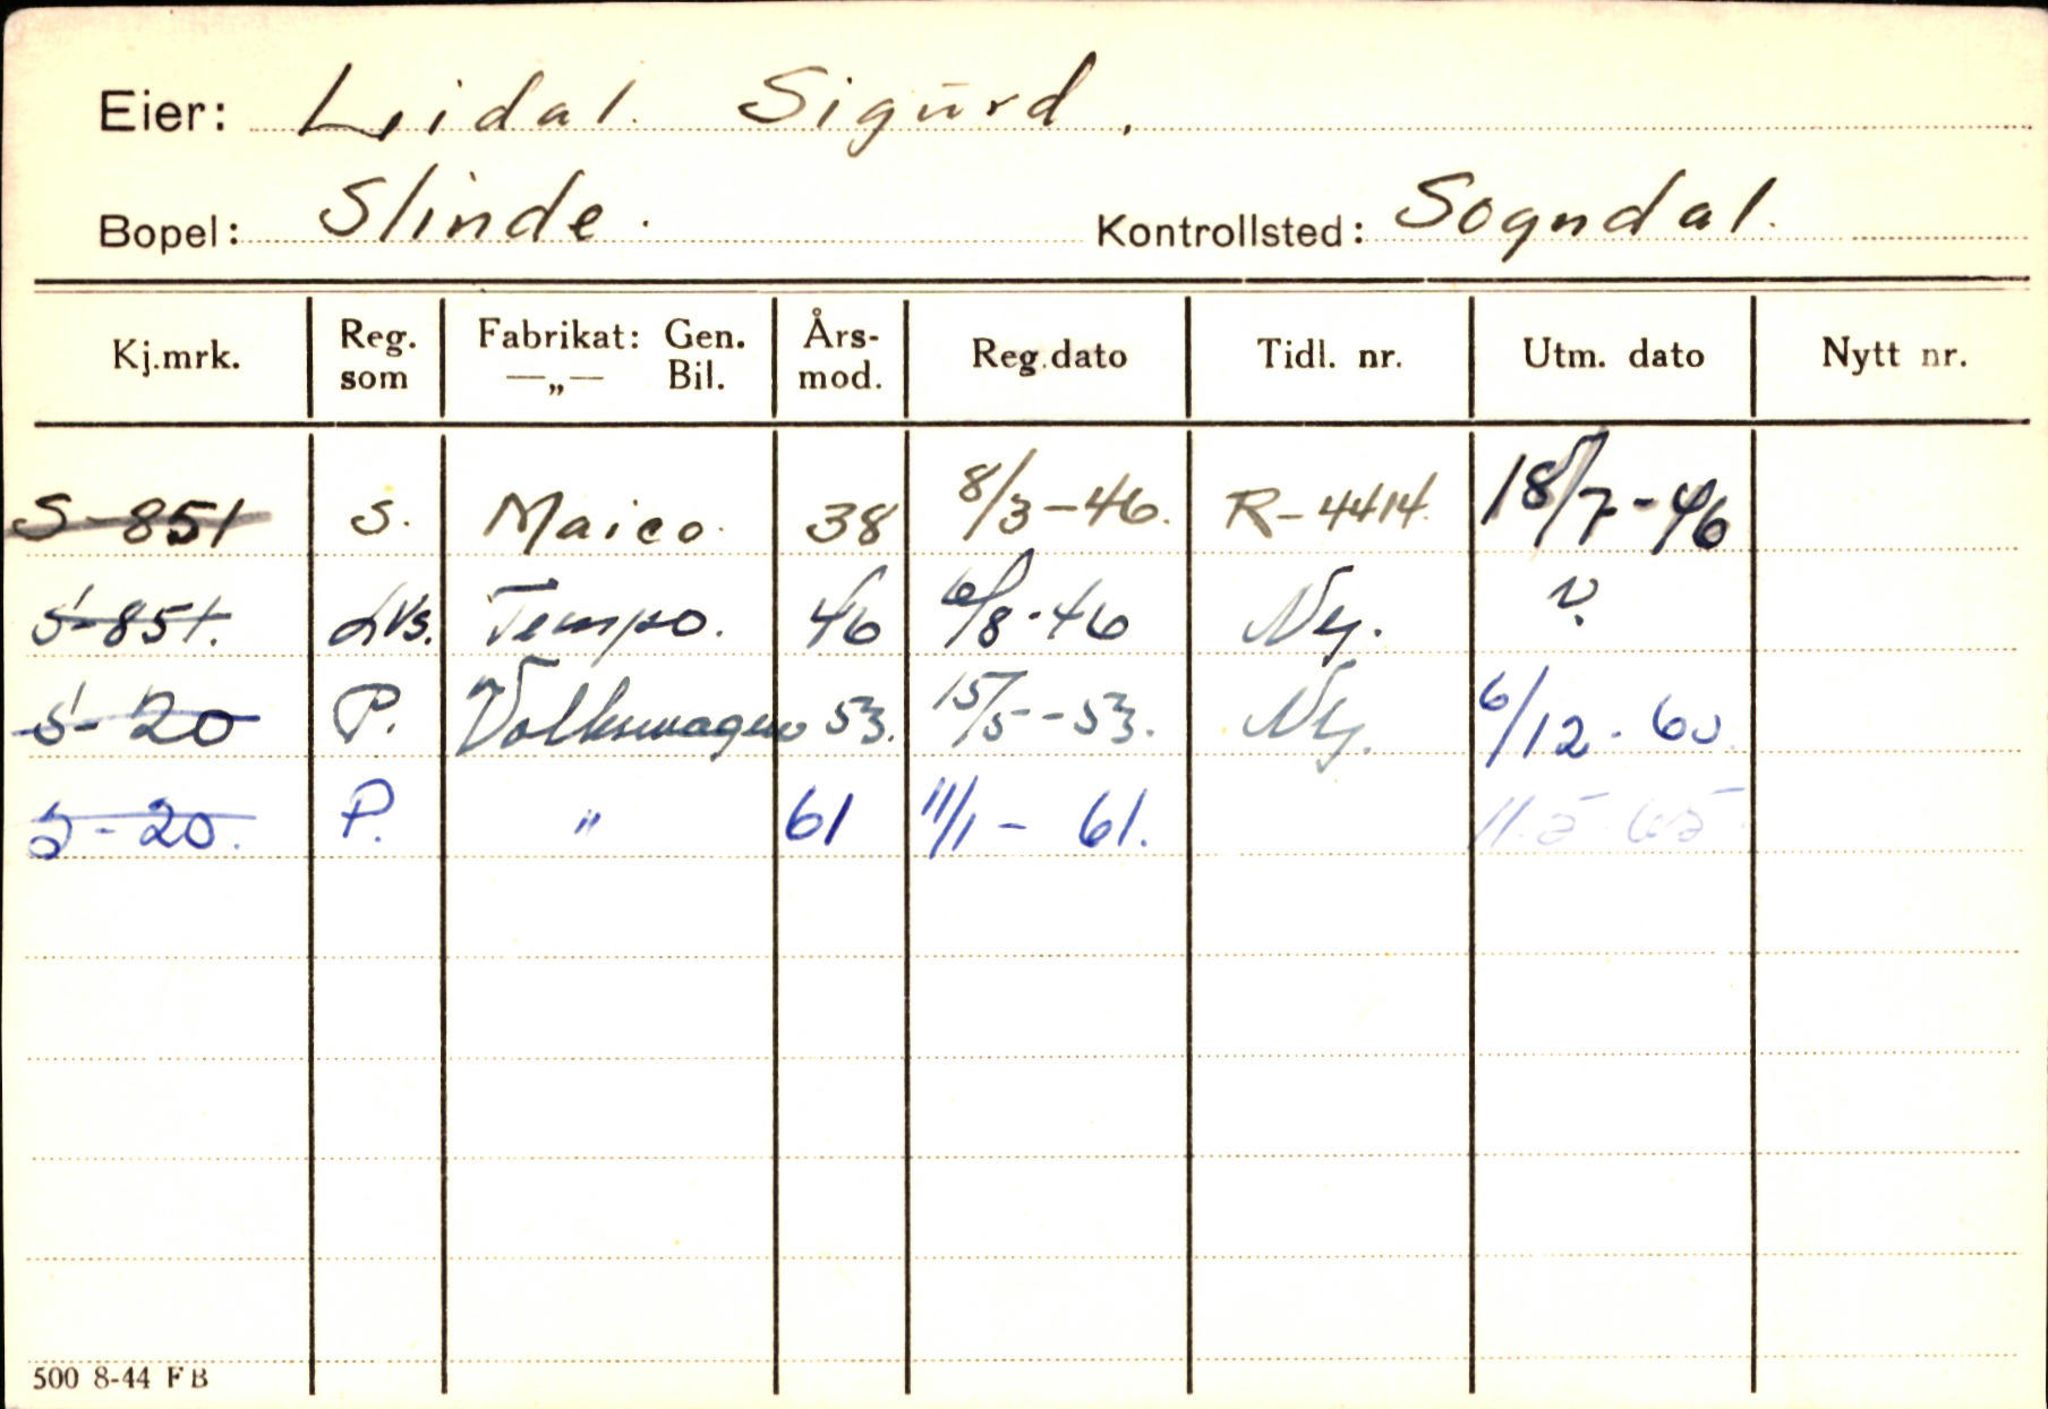 Eier: Leidal Sigurd.
Bopel: Slinde. Kontrollsted: Sogndal.
Kj.mrk. Reg. som Fabrikat: Gen. —„— Bil. Års-mod. Reg.dato Tidl. nr. Utm. dato Nytt nr.
S-851 S. Maico. 38 8/3-46. R-4414. 18/7-46
S-851. Lvs. Tempo. 46 6/8-46 Ny. v.
S-20 P. Volkswagen 53. 15/5-53. Ny. 6/12-60
S-20. P. " 61 11/1-61. 11-5-65
500 8-44 FB